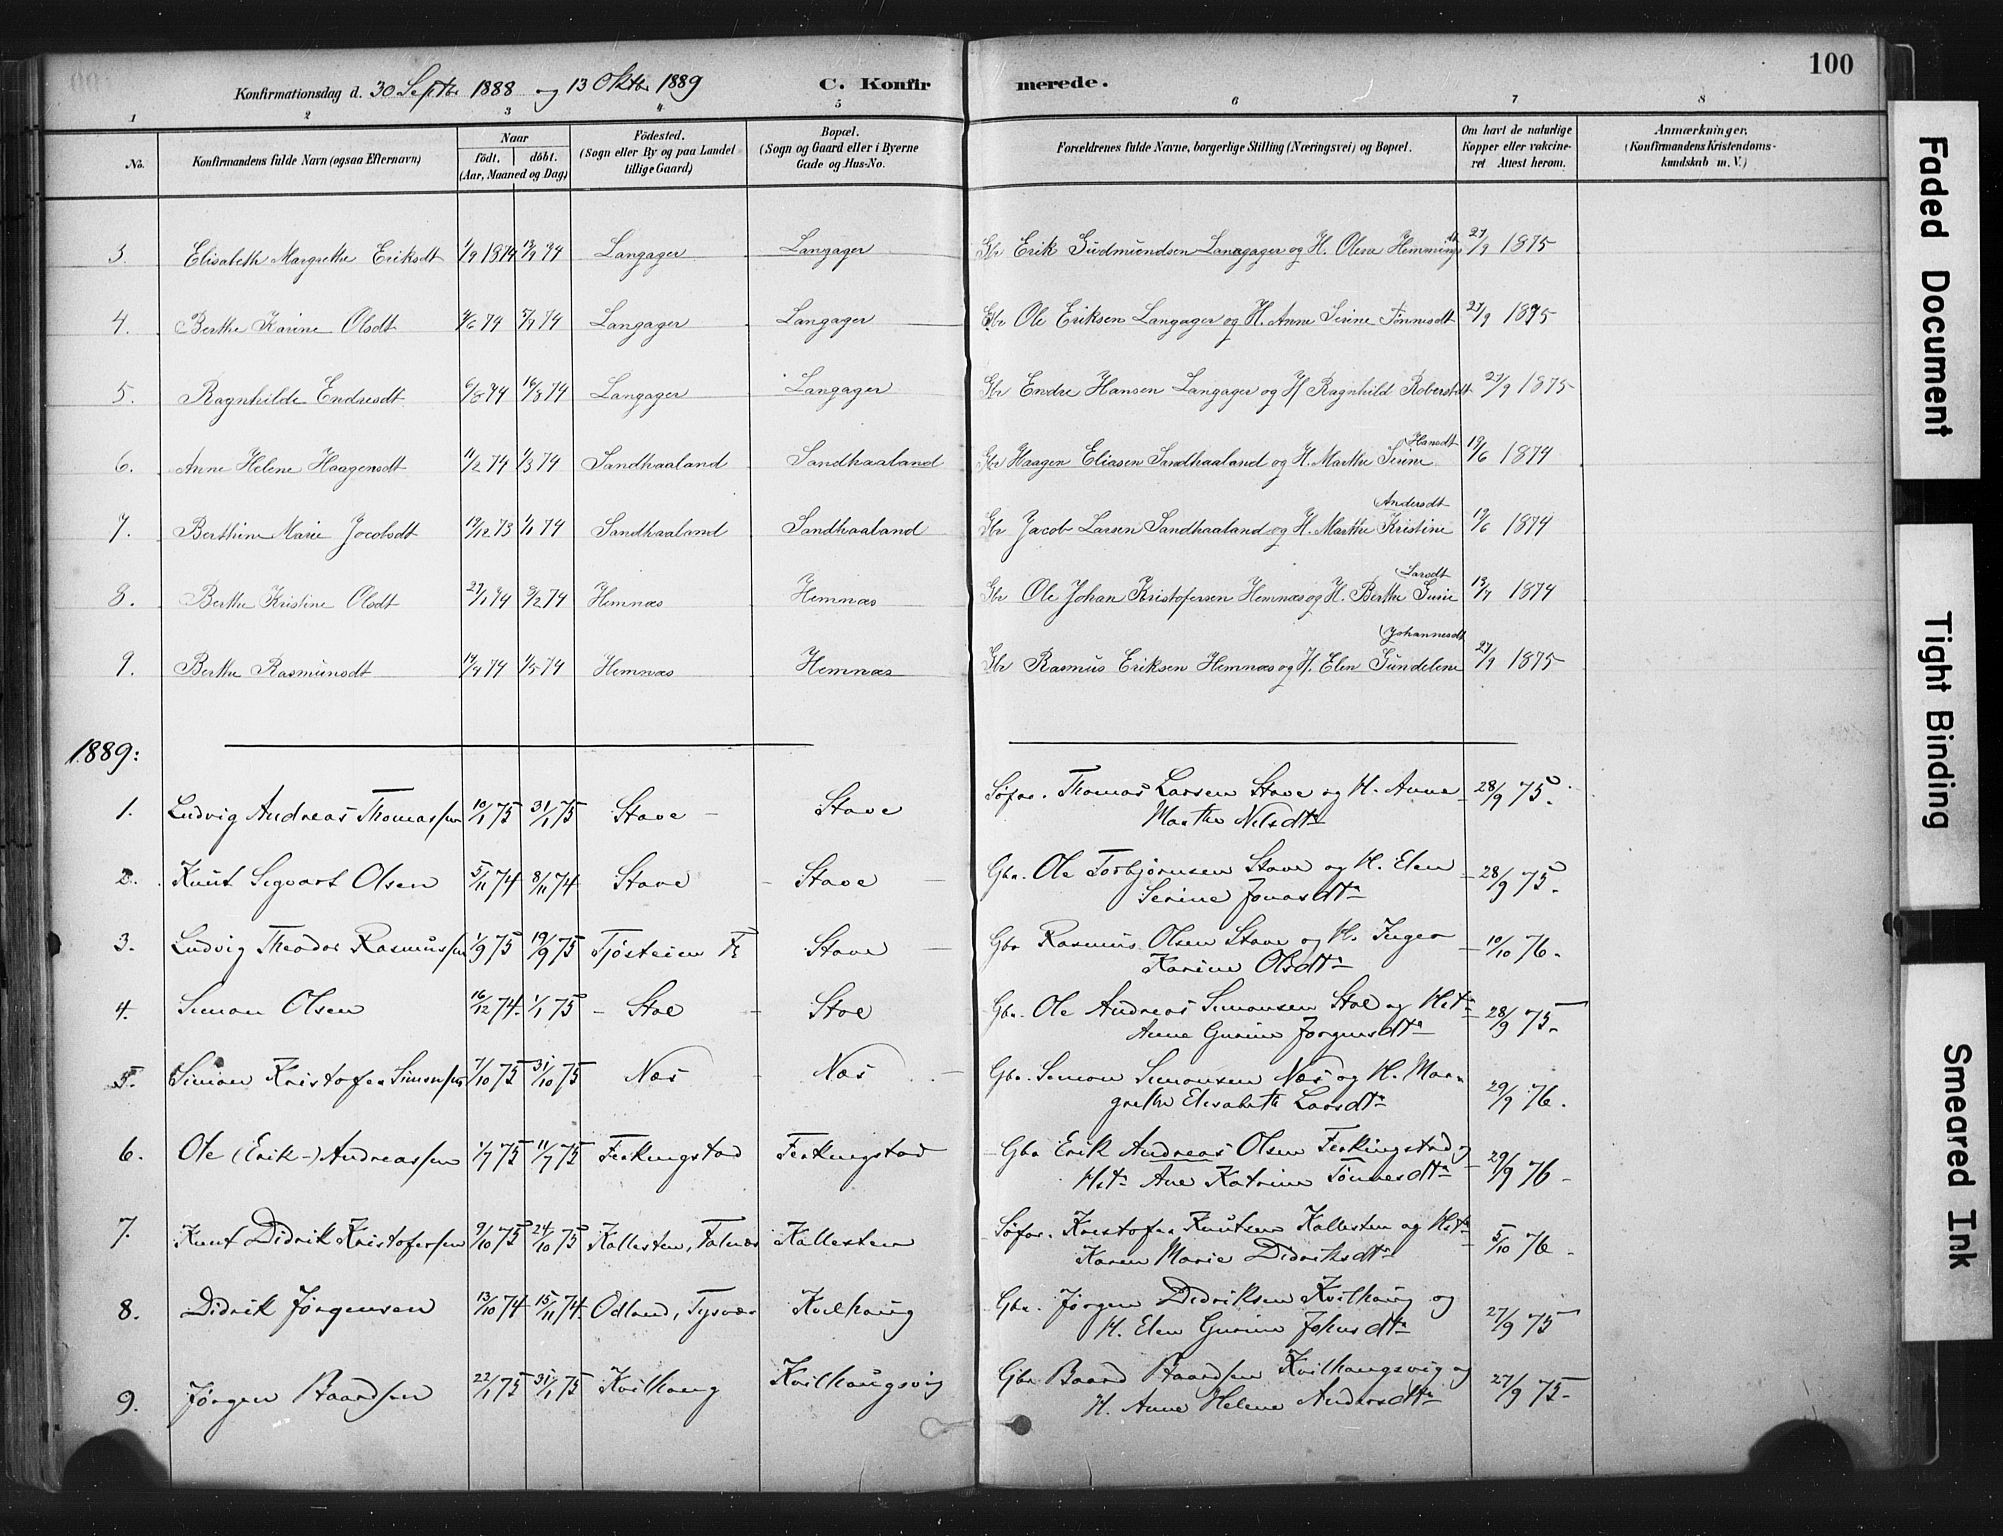 100
Konfirmationsdag d. 30 Septbr 1888 og 13 Oktbr 1889 C. Konfirmerede.
1 2 3 4 5 6 7 8
No.
Konfirmandens fulde Navn (ogsaa Efternavn)
Naar
födt. döbt.
(Aar, Maaned og Dag)
Födested.
(Sogn eller By og paa Landet
tillige Gaard)
Bopæl.
(Sogn og Gaard eller i Byerne
Gade og Hus-No.
Forældrenes fulde Navne, borgerlige Stilling (Næringsvei) og Bopæl.
Om havt de naturlige
Kopper eller vakcine-
ret Attest herom.
Anmærkninger.
(Konfirmandens Kristendoms-
kundskab m. V.)
3. Elisabeth Margrethe Eriksdt 1/9 1874 74 Langager Langager Gbr Erik Gudmundsen Langager og H. Olena Hemmingsdt 27/9 1875
4. Berthe Karine Olsdt 74 74 Langager Langager Gbr Ole Eriksen Langager og H. Anne Serine Tönnesdt 27/9 1875
5. Ragnhilde Endresdt 74 74 Langager Langager Gbr Endre Hansen Langager og H Ragnhild Roberstdt 27/9 1875
6. Anne Helene Haagensdt 11/2 74 1/3 74 Sandhaaland Sandhaaland Gbr Haagen Eliasen Sandhaaland og H. Marthe Serine (Hansdt 19/6 1874
7. Berthine Marie Jacobsdt 19/12 73 1/1 74 Sandhaaland Sandhaaland Gbr Jacob Larsen Sandhaaland og H. Marthe Kristine (Andersdt 19/6 1874
8. Berthe Kristine Olsdt 27/1 74 9/2 74 Hemnæs Hemnæs Gbr Ole Johan Kristofersen Hemnæs og H. Berthe (Larsdt 1874
9. Berthe Rasmundsdt 74 1/5 74 Hemnæs Hemnæs Gbr Rasmus Eriksen Hemnæs og H. Elen Gundelene (Johannesdt 27/9 1875
1889:
1. Ludvig Andreas Thomassen 10/1 75 31/1 75 Stave Stave Søfar. Thomas Larsen Stave og H. Anna 28/9 75.
Marthe Nilsdtr
2. Knut Sigvart Olsen 5/11 74 8/11 74 Stave Stave Gbr. Ole Torbjørnsen Stave og H. Elen 28/9 75.
Serine Jonasdtr
3. Ludvig Theodor Rasmussen 1/9 75 19/9 75 Tjøsteim Stave Gbr Rasmus Olsen Stave og H. Inger 10/10 76.
Karine Olsdtr
4. Simon Olsen 16/12 74. 1/1 75 Stol Stol Gbr. Ole Andreas Simonsen Stol og Hst 28/9 75.
Anne Gurine Jørgensdtr
5. Simon Kristofer Simonsen 7/10 75 31/10 75 Næs Næs Gbr. Simon Simonsen Næs og H. Mar- 29/9 76.
grethe Elisabeth Larsdtr
6. Ole (Erik-) Andreassen 1/7 75 11/7 75 Ferkingstad Ferkingstad Gbr Erik Andreas Olsen Ferkingstad og 29/9 76.
Hst Ane Katrine Tønnesdtr
7. Knut Didrik Kristofersen 9/10 75 24/10 75 Kallesten, Falnæs Kallesten Søfar. Kristofer Knutsen Kallesten og Hst 5/10 76.
Karen Marie Didriksdtr
8. Didrik Jørgensen 13/10 74 15/11 74. Odland, Tysvær Kvilhaug Gbr. Jørgen Didriksen Kvilhaug og 27/9 75
H. Elen Gurine Johnsdtr
9. Jörgen Baardsen 22/1 75 31/1 75 Kvilhaug Kvilhaugsvig Gbr Baard Baardsen Kvilhaugsvig og 27/9 75.
H. Anne Helene Andersdtr
Faded Document
Tight Binding
Smeared Ink